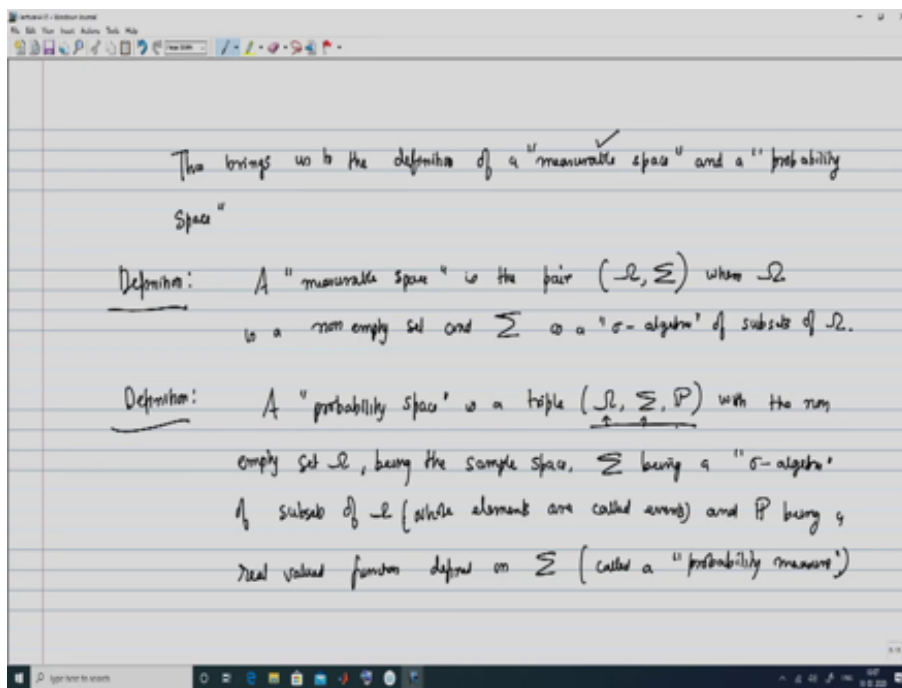 File Edit View Insert Actions Tools Help
This brings us to the definition of a "measurable space" and a "probability
Space"
Definition: A "measurable space" is the pair (Ω, Σ) where Ω
is a non empty set and Σ is a "σ-algebra" of subsets of Ω.
Definition: A "probability space" is a triple (Ω, Σ, ℙ) with the non
empty set Ω, being the sample space, Σ being a "σ-algebra"
of subsets of Ω (whose elements are called events) and ℙ being a
real valued function defined on Σ (called a "probability measure")
Type here to search